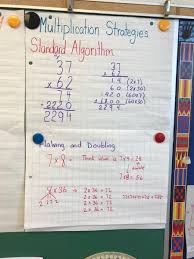 Multiplication Strategies
Standard Algorithm
37
x 62
74
+ 2220
2294
37
x 62
14 (2x7)
60 (2x30)
420 (60x7)
+1800 (60x30)
2294
Halving and Doubling
7 x 8
Think what is 7x4 = 28
7x8 = 56
2 x 36 = 72
2 x 36 = 72
2 x 36 = 72